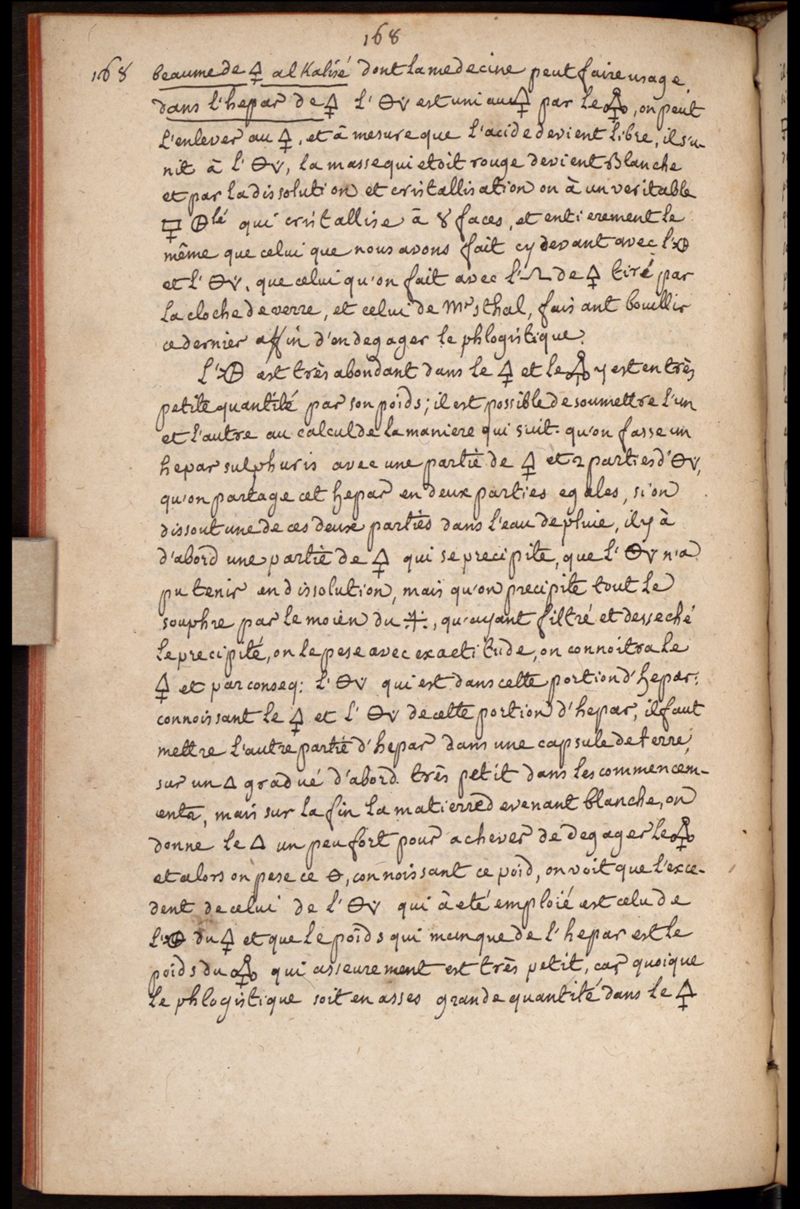 168
168 beaume de 🜍 alkalisé dont la medecine peut faire usage.
dans l'hepar de 🜍 l' 🜔v est uni au 🜍 par le , on peut
l'enlever au 🜍, et à mesure que l'acide devient libre, il s'u
nit à l' 🜔v, la masse qui etoit rouge devient blanche
et par la dissolution et cristallisation on à un veritable
🜕lé qui cristallise à 8 faces, et entierement le
même que celui que nous avons fait cy devant avec l'
et l' 🜔v, que celui qu'on fait avec l' de 🜍 tiré par
la cloche de verre, et celui de Mr sthal, fais ant bouillir
ce dernier affin d'en degager le phlogistique.
L' est très abondant dans le 🜍 et le y est en très
petite quantité par son poids; il est possible de soumettre l'un
et l'autre au calcul de la maniere qui suit. qu'on fasse un
hepar sulphuris avec une partie de 🜍 et 2 parties d' 🜔v,
qu'on partage cet hepar en deux parties egales, si on
dissout une de ces deux parties dans l'eau de pluie, il y à
d'abord une partie de 🜍 qui se precipite, que l' 🜔v n'a
pu tenir en dissolution, mais qu'on precipite tout le
souphre par le moien du 🜊, qu'ayant filtré et desseché
le precipité, on le pese avec exactitude, on connoitra le
🜍 et par conseq: l' 🜔v qui est dans cette portion d'hepar:
connoissant le 🜍 et l' 🜔v de cette portion d'hepar, il faut
mettre l'autre partie d'hepar dans une capsule de terre,
sur un 🜂 gradué d'abord très petit dans les commencem-
ents, mais sur la fin la matierre devenant blanche, on
donne le 🜂 un peu fort pour achever de degager le
et alors on pese ce 🜔, connoissant ce poid, on voit que l'exce-
dent de celui de l' 🜔v qui à eté emploié est celui de
l' du 🜍 et que le poids qui manque de l'hepar est le
poids du qui asseurement est très petit, car quoique
le phlogistique soit en asses grande quantité dans le 🜍